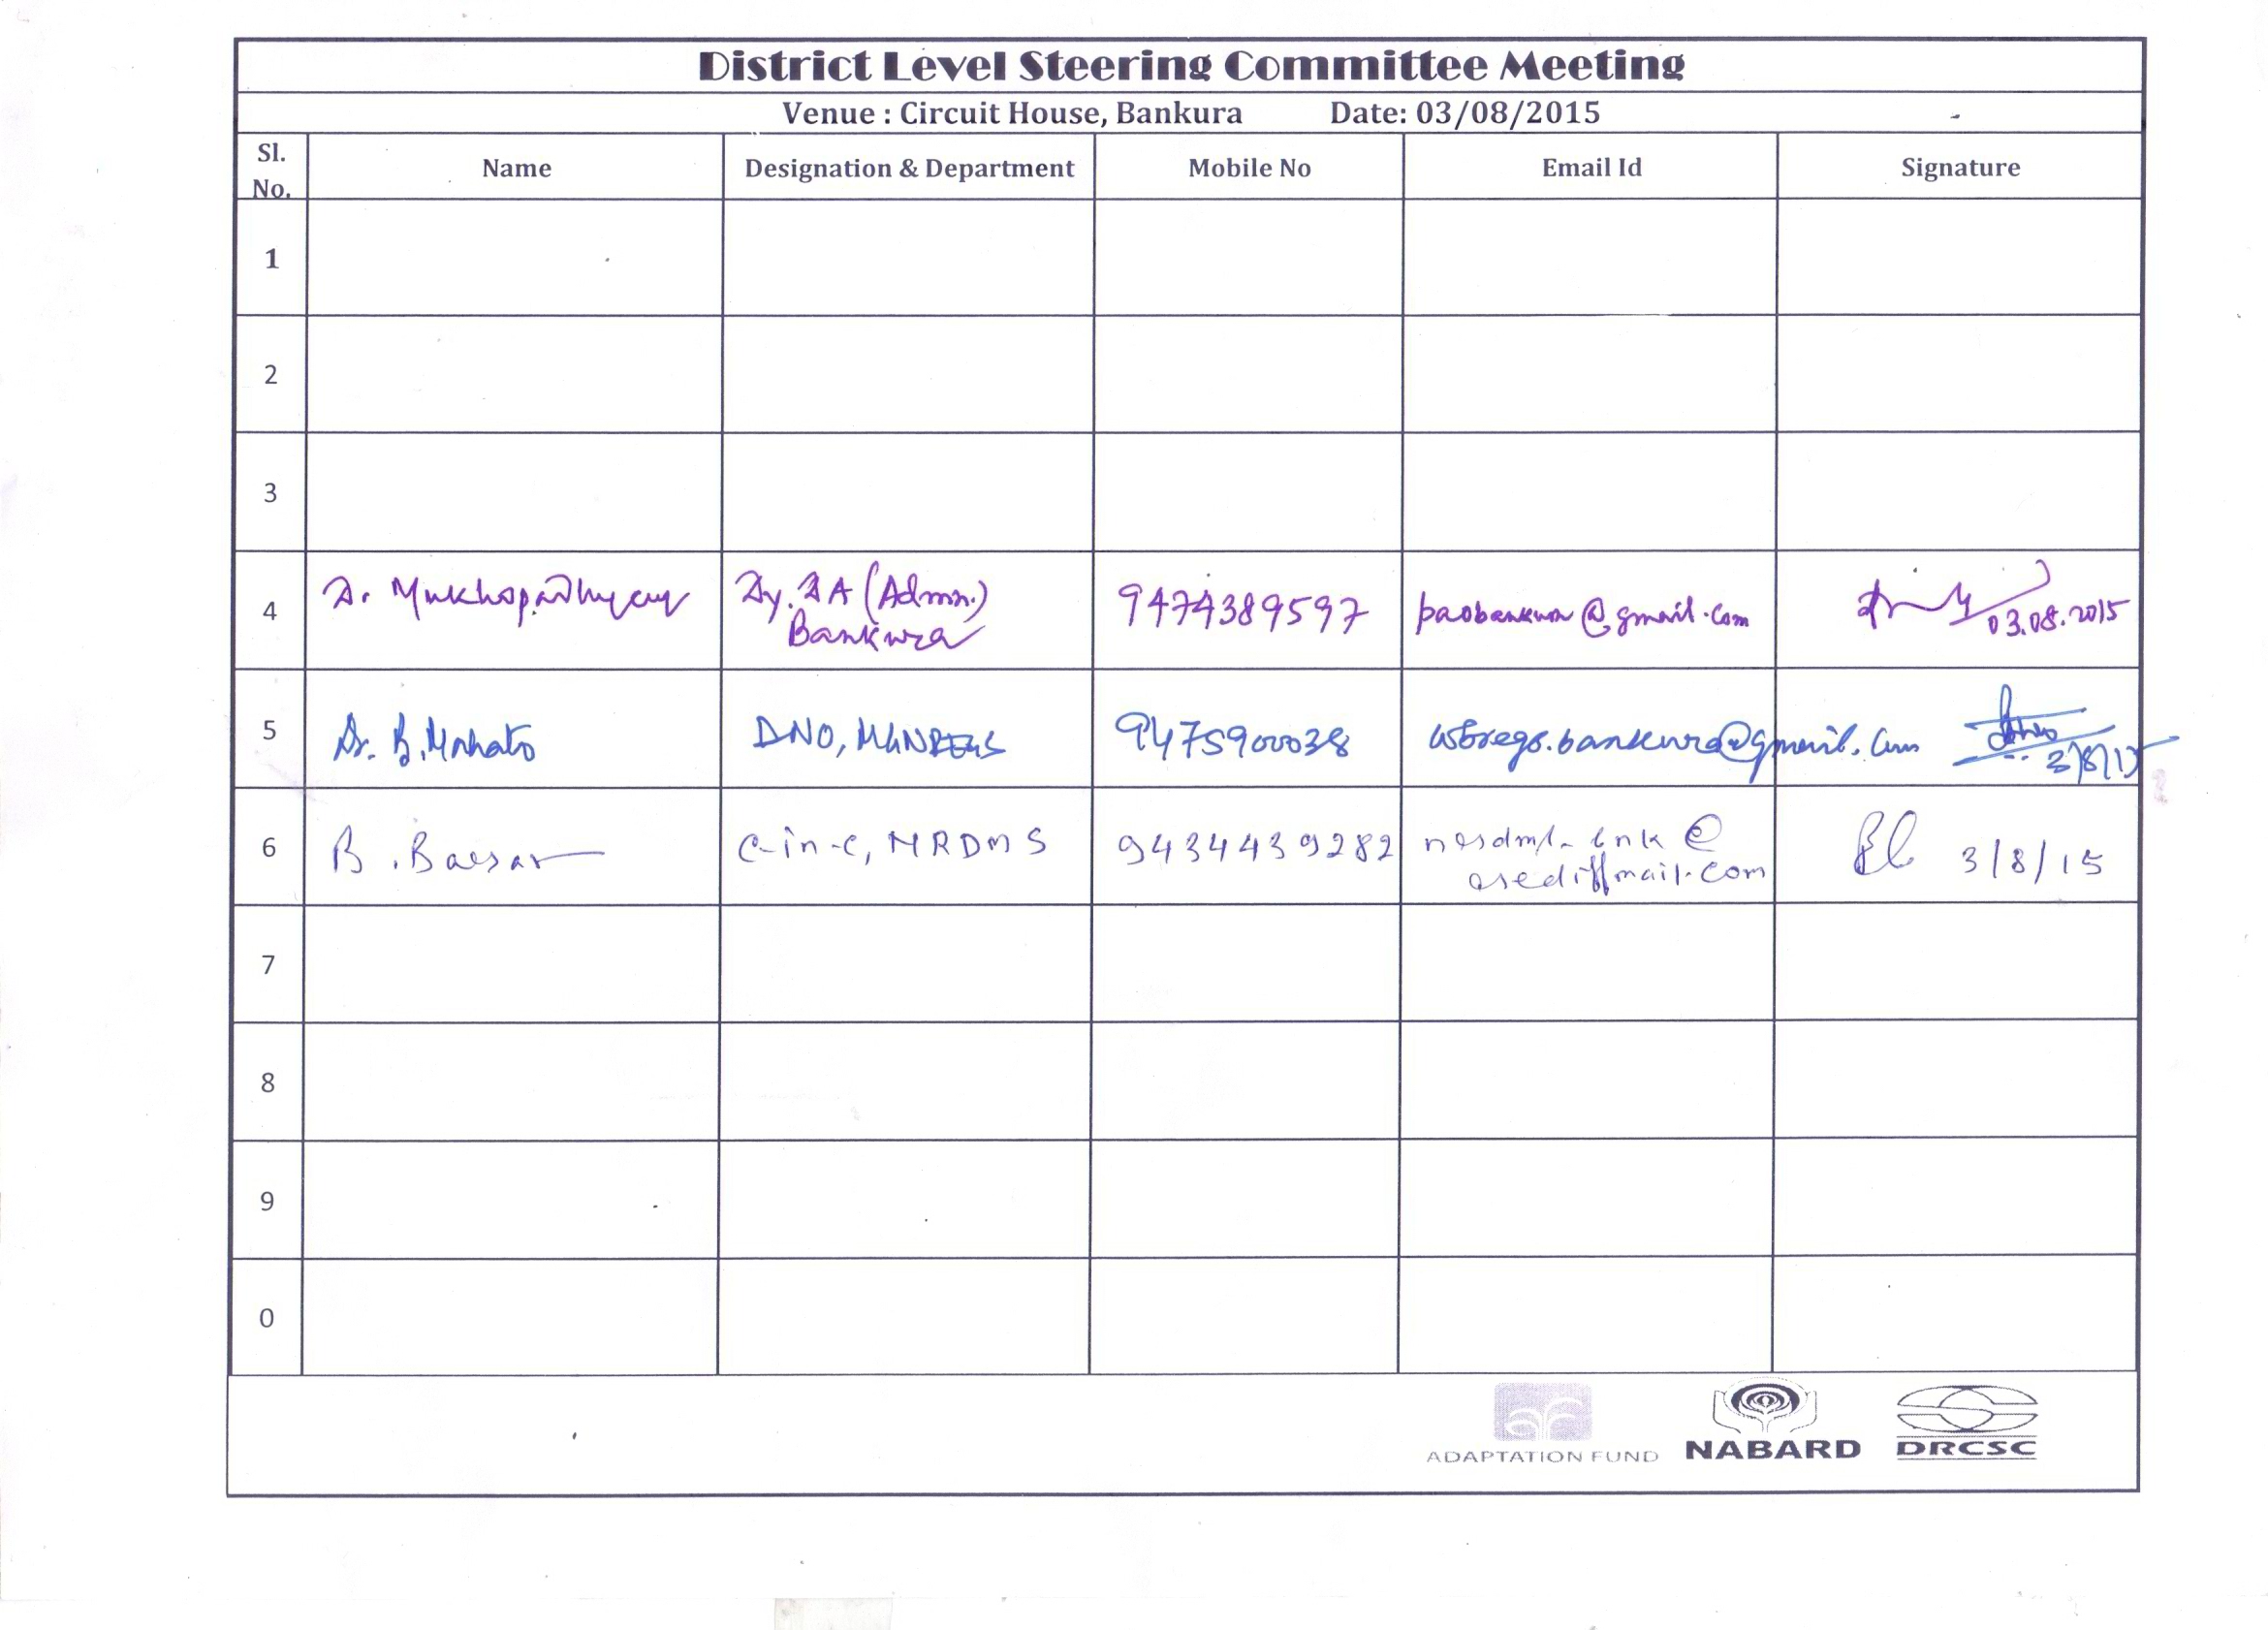 District Level Steering Committee Meeting
Venue : Circuit House, Bankura Date: 03/08/2015
Sl. No. Name Designation & Department Mobile No Email Id Signature
1
2
3
4 D. Mukhopadhyay Dy. DA (Admn.) 9474389597 paobankura@gmail.com 03.08.2015
Bankura
5 Dr. B. Mahato DNO, MGNREGS 9475900038 wbregs.bankura@gmail.com 3/8/15
6 B. C-in-C, NRDMS 9434439282 3/8/15
7
8
9
0
ADAPTATION FUND NABARD DRCSC